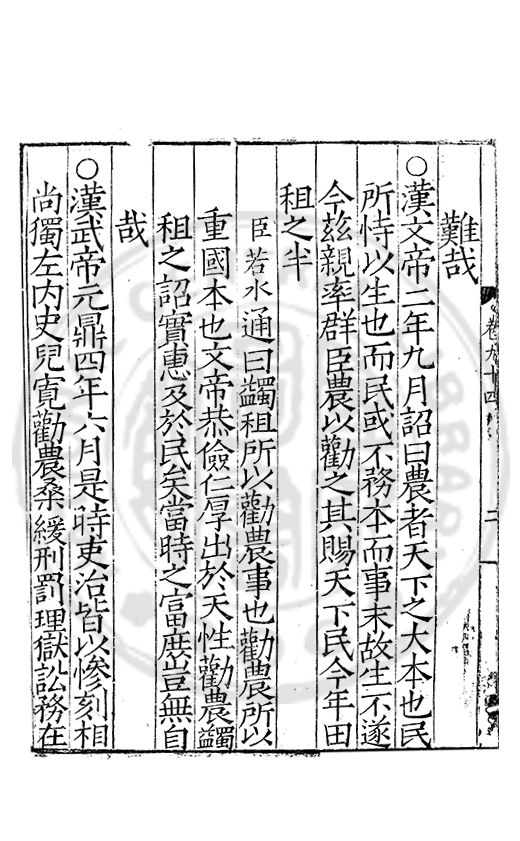 難哉
○漢文帝二年九月詔曰農者天下之大本也民
所恃以生也而民或不務本而事末故生不遂
今茲親率群臣農以勸之其賜天下民今年田
租之半
臣若水通曰蠲租所以勸農事也勸農所以
重國本也文帝恭儉仁厚出於天性勸農蠲
租之詔實惠及於民矣當時之富庶豈無自
哉
○漢武帝元鼎四年六月是時吏治皆以慘刻相
尚獨左内史兒寬勸農桑緩刑罰理獄訟務在
卷九十四
二